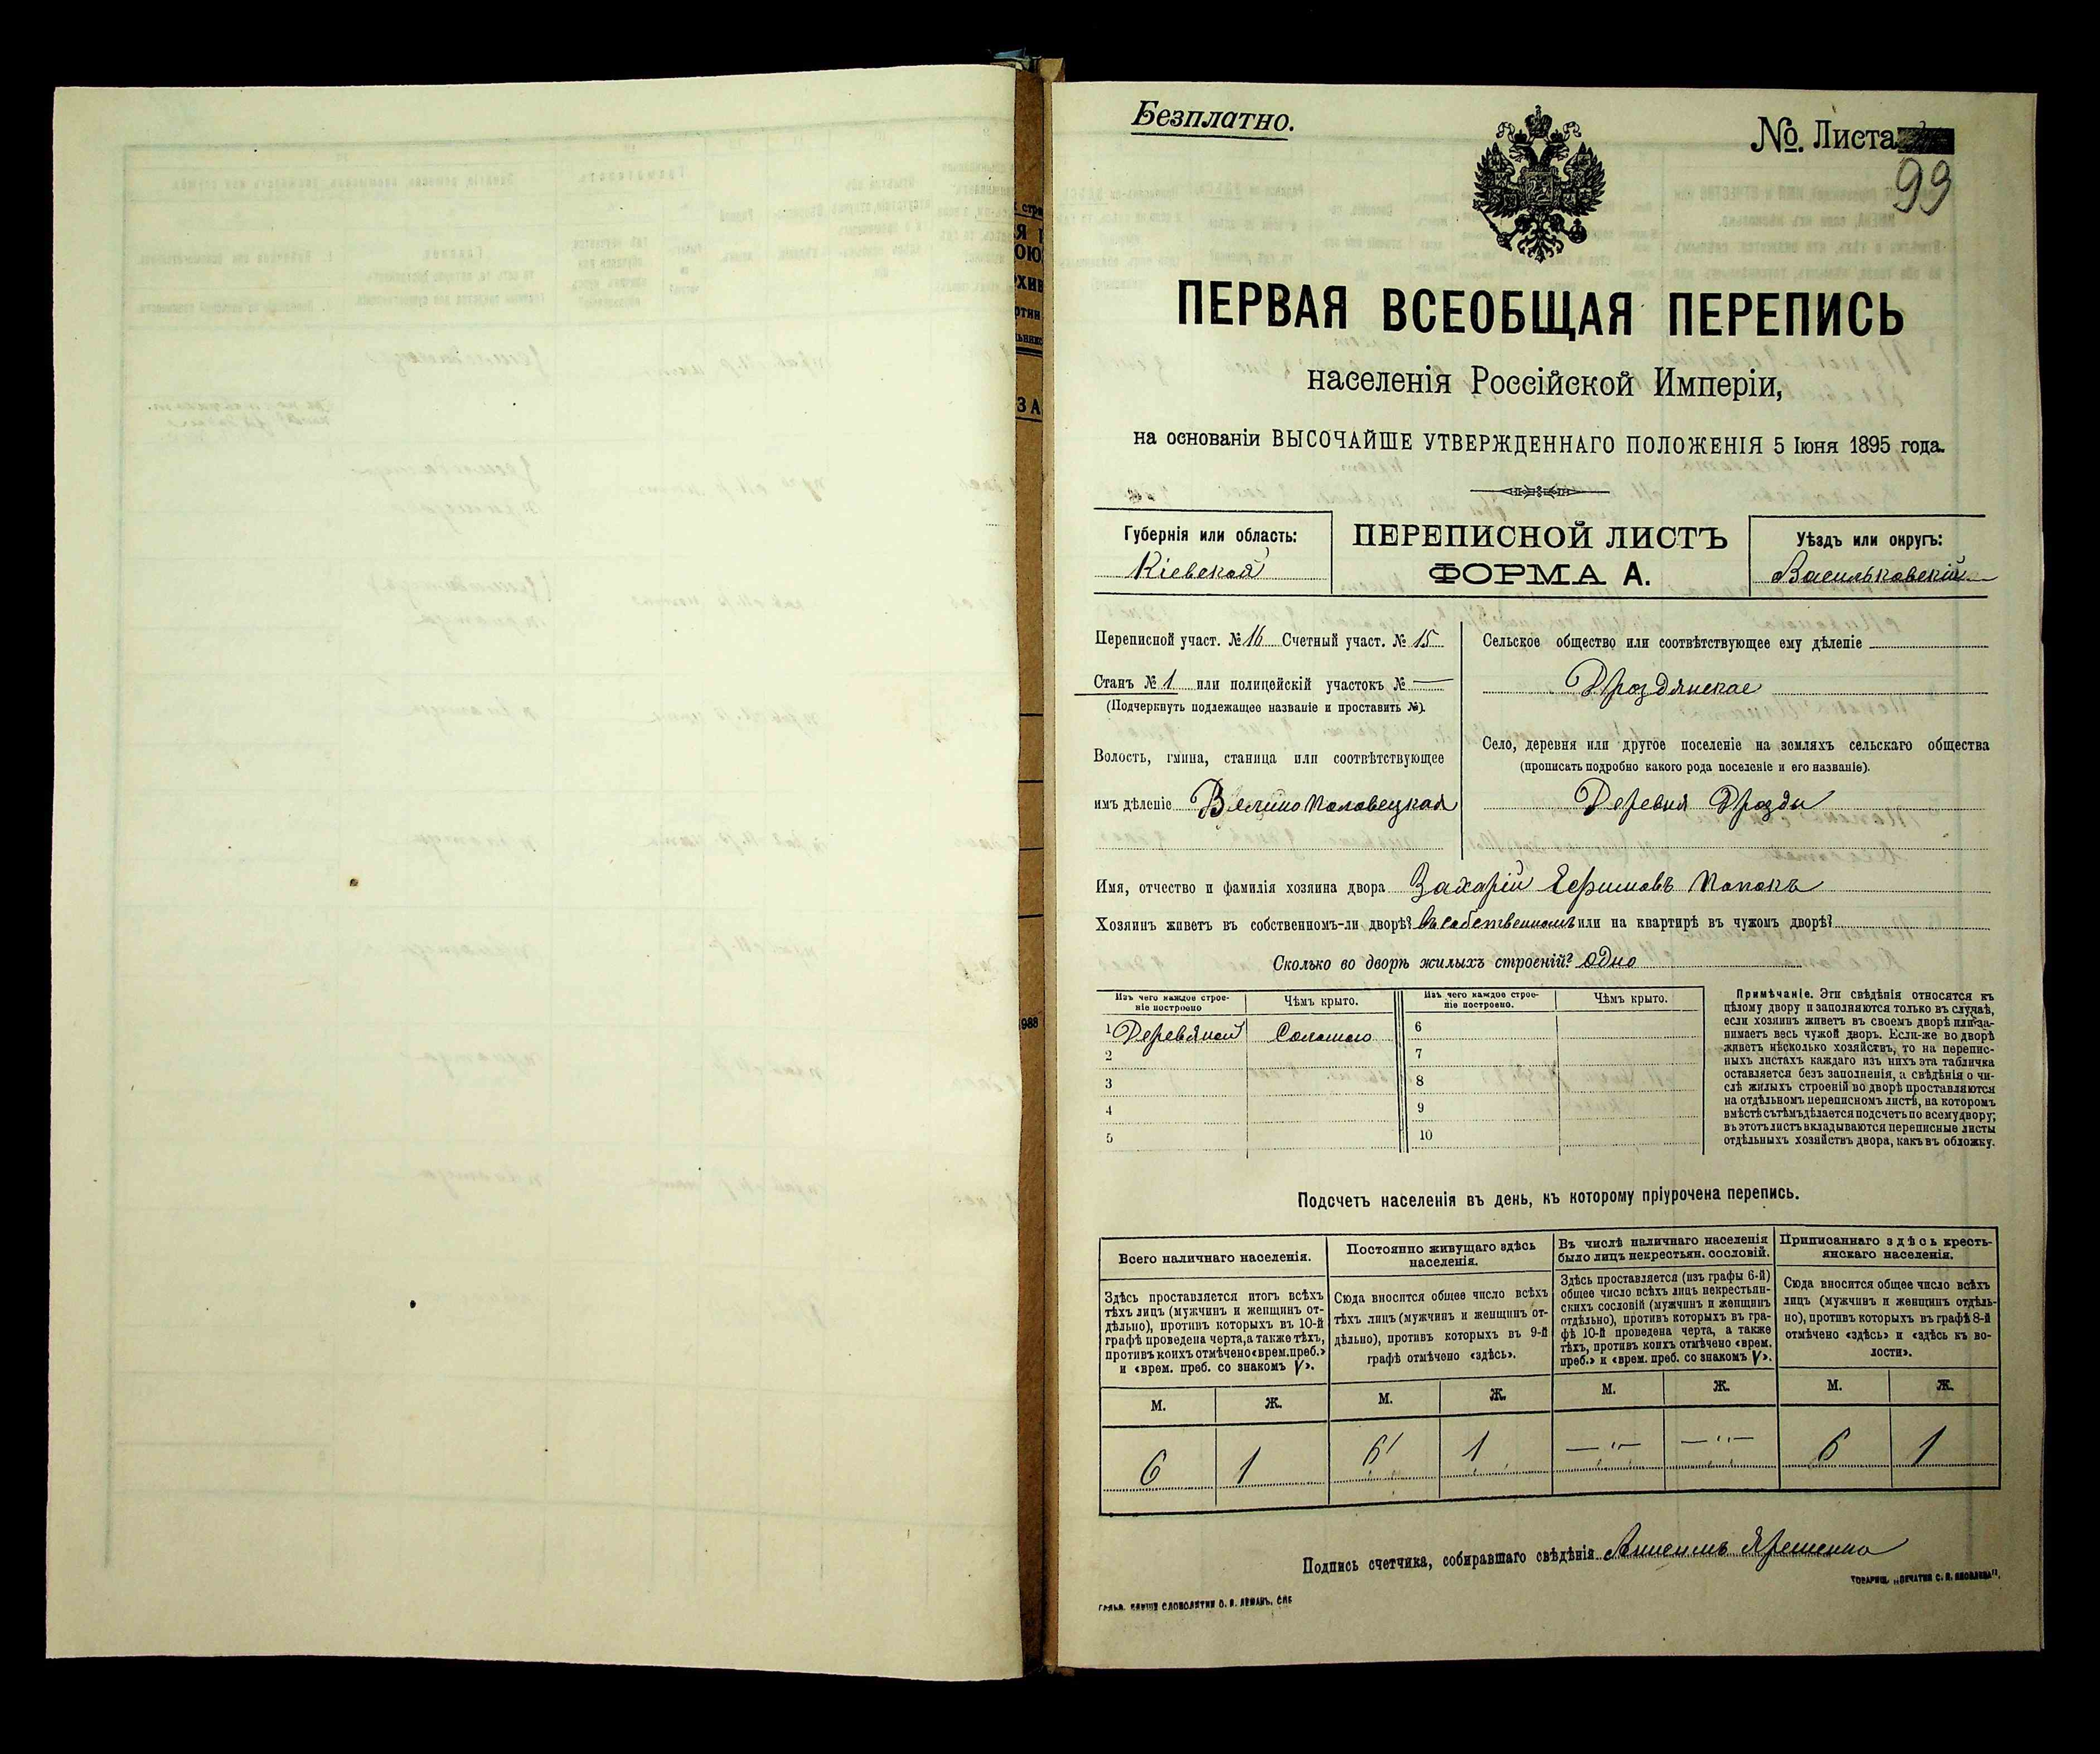 Безплатно.
№. Листа
99
ПЕРВАЯ ВСЕОБЩАЯ ПЕРЕПИСЬ
населенія Россійской Имперіи,
на основаніи ВЫСОЧАЙШЕ УТВЕРЖДЕННАГО ПОЛОЖЕНІЯ 5 Іюня 1895 года.
Губернія или область:
Кіевская
ПЕРЕПИСНОЙ ЛИСТЪ
ФОРМА А.
Уѣздъ или округъ:
Васильковскій
Переписной участ. № 16 Счетный участ. № 15
Станъ № 1 или полицейскій участокъ № —
(Подчеркнуть подлежащее названіе и проставить №).
Волость, гмина, станица или соотвѣтствующее
имъ дѣленіе Велико Половецкая
Сельское общество или соотвѣтствующее ему дѣленіе
Дроздянское
Село, деревня или другое поселеніе на земляхъ сельскаго общества
(прописать подробно какого рода поселеніе и его названіе).
Деревня Дрозды
Имя, отчество и фамилія хозяина двора Захарій Ефимовъ Попокъ
Хозяинъ живетъ въ собственномъ-ли дворѣ? Въ собственномъ или на квартирѣ въ чужомъ дворѣ?
Сколько во дворѣ жилыхъ строеній? одно
Изъ чего каждое строе-
ніе построено
Чѣмъ крыто.
Изъ чего каждое строе-
ніе построено.
Чѣмъ крыто.
1 Деревяной Соломою 6
2 7
3 8
4 9
5 10
Примѣчаніе. Эти свѣдѣнія относятся къ
цѣлому двору и заполняются только въ случаѣ,
если хозяинъ живетъ въ своемъ дворѣ или за-
нимаетъ весь чужой дворъ. Если-же во дворѣ
живетъ нѣсколько хозяйствъ, то на перепис-
ныхъ листахъ каждаго изъ нихъ эта табличка
оставляется безъ заполненія, а свѣдѣнія о чи-
слѣ жилыхъ строеній во дворѣ проставляются
на отдѣльномъ переписномъ листѣ, на которомъ
вмѣстѣ съ тѣмъ дѣлается подсчетъ по всему двору;
въ этотъ листъ вкладываются переписные листы
отдѣльныхъ хозяйствъ двора, какъ въ обложку.
Подсчетъ населенія въ день, къ которому пріурочена перепись.
Всего наличнаго населенія.
Здѣсь проставляется итогъ всѣхъ
тѣхъ лицъ (мужчинъ и женщинъ от-
дѣльно), противъ которыхъ въ 10-й
графѣ проведена черта, а также тѣхъ,
противъ коихъ отмѣчено «врем. преб.»
и «врем. преб. со знакомъ V».
Постоянно живущаго здѣсь
населенія.
Сюда вносится общее число всѣхъ
тѣхъ лицъ (мужчинъ и женщинъ от-
дѣльно), противъ которыхъ въ 9-й
графѣ отмѣчено «здѣсь».
Въ числѣ наличнаго населенія
было лицъ некрестьян. сословій.
Здѣсь проставляется (изъ графы 6-й)
общее число всѣхъ лицъ некрестьян-
скихъ сословій (мужчинъ и женщинъ
отдѣльно), противъ которыхъ въ гра-
фѣ 10-й проведена черта, а также
тѣхъ, противъ коихъ отмѣчено «врем.
преб.» и «врем. преб. со знакомъ V».
Приписаннаго здѣсь кресть-
янскаго населенія.
Сюда вносится общее число всѣхъ
лицъ (мужчинъ и женщинъ отдѣль-
но), противъ которыхъ въ графѣ 8-й
отмѣчено «здѣсь» и «здѣсь къ во-
лости».
М. Ж. М. Ж. М. Ж. М. Ж.
6 1 6 1 — " — — " — 6 1
Подпись счетчика, собиравшаго свѣдѣнія